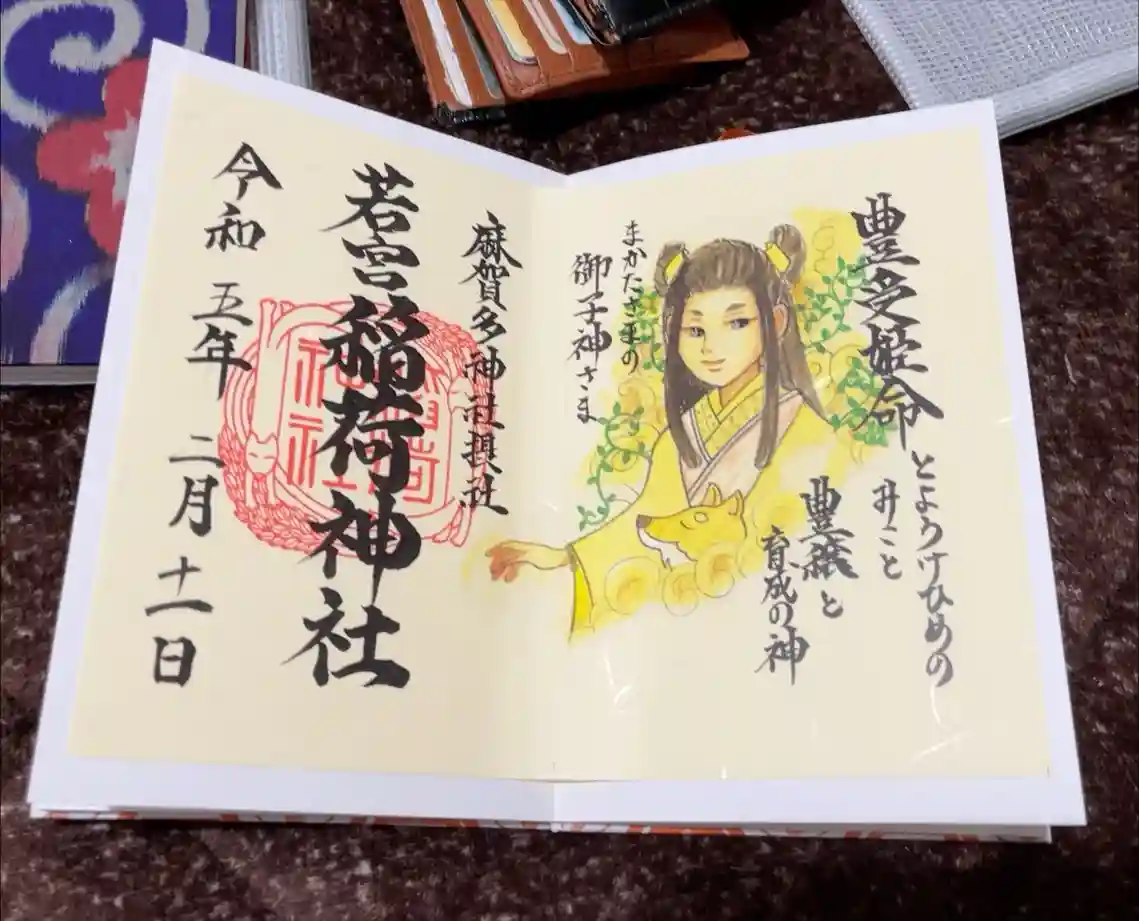 豊受姫命
とようけひめの
みこと
豊穣と
育成の神
まかたさまの
御子神さま
麻賀多神社摂社
若宮稲荷神社
令和 五年 二月 十一日